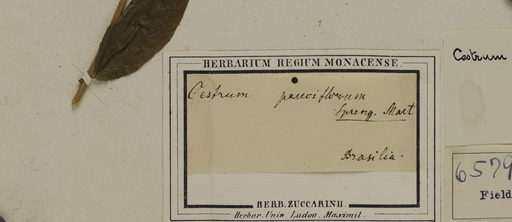 HERBARIUM REGIUM MONACENSE.
Cestrum pauciflorum
Spreng. Mart
Brasilia.
HERB. ZUCCARINII.
Herbar. Univ. Ludov. Maximil.
Cestrum
6579
Field